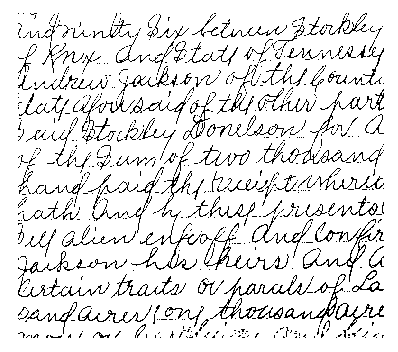 and ninety Six between Stockley
of Knx and State of Tennessey
Andrew Jackson of the Count
State aforesaid of the other part
Said Stockley Donelson for A
of the Sum of two thousand
hand paid the receipt wheret
hath And by these presents
Sell alien enfeoff And Confir
Jackson his heirs And A
Certain traits or parcels of La
sand acres one thousand acre